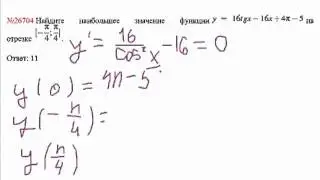 №26704 Найдите наибольшее значение функции y = 16tgx − 16x + 4π − 5 на
отрезке [−π/4; π/4].
Ответ: 11
y' = 16/cos²x − 16 = 0
y(0) = 4π − 5
y(−π/4) =
y(π/4)